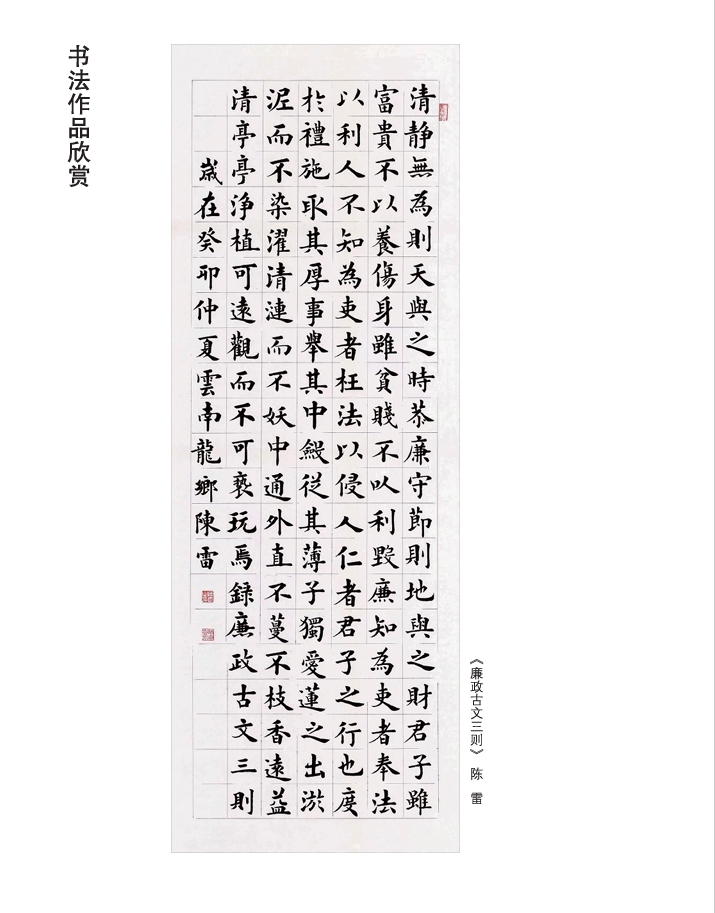 书法作品欣赏
清静無為則天與之時恭廉守節則地與之財君子雖
富貴不以養傷身雖貧賤不以利毀廉知為吏者奉法
以利人不知為吏者枉法以侵人仁者君子之行也度
於禮施取其厚事舉其中斂從其薄子獨愛蓮之出淤
泥而不染濯清漣而不妖中通外直不蔓不枝香遠益
清亭亭浄植可遠觀而不可褻玩焉録廉政古文三則
歲在癸卯仲夏雲南龍鄉陳雷
《廉政古文三则》 陈 雷